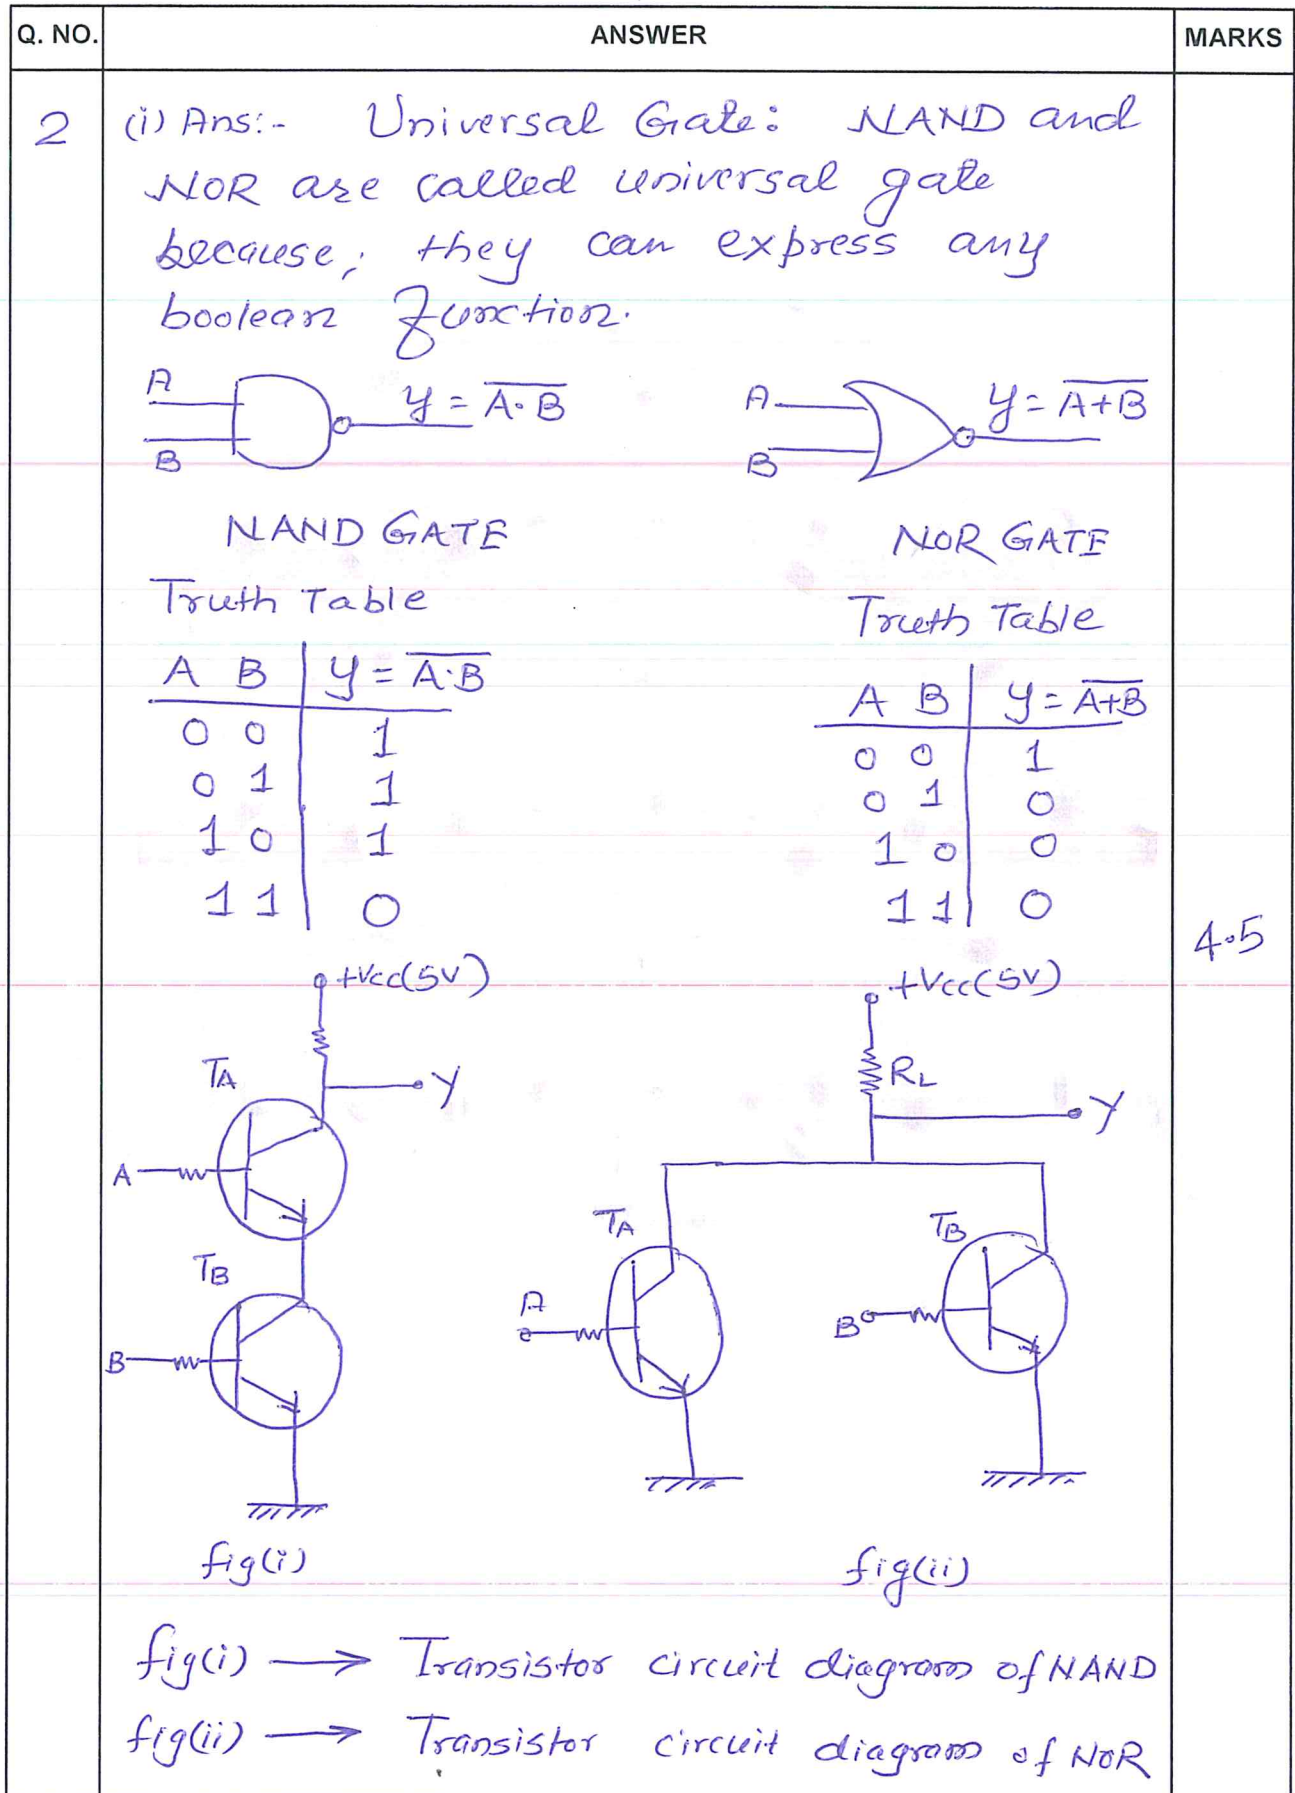 Q. NO. ANSWER MARKS
2 (i) Ans:- Universal Gate: NAND and
NOR are called universal gate
because, they can express any
boolean function.
A
B
y = \overline{A·B}
A
B
y = \overline{A+B}
NAND GATE
NOR GATE
Truth Table
Truth Table
A B y = \overline{A·B}
0 0 1
0 1 1
1 0 1
1 1 0
A B y = \overline{A+B}
0 0 1
0 1 0
1 0 0
1 1 0
4.5
+Vcc(5V)
TA
Y
A
TB
B
+Vcc(5V)
RL
Y
TA
TB
A
B
fig(i)
fig(ii)
fig(i) → Transistor circuit diagram of NAND
fig(ii) → Transistor circuit diagram of NOR